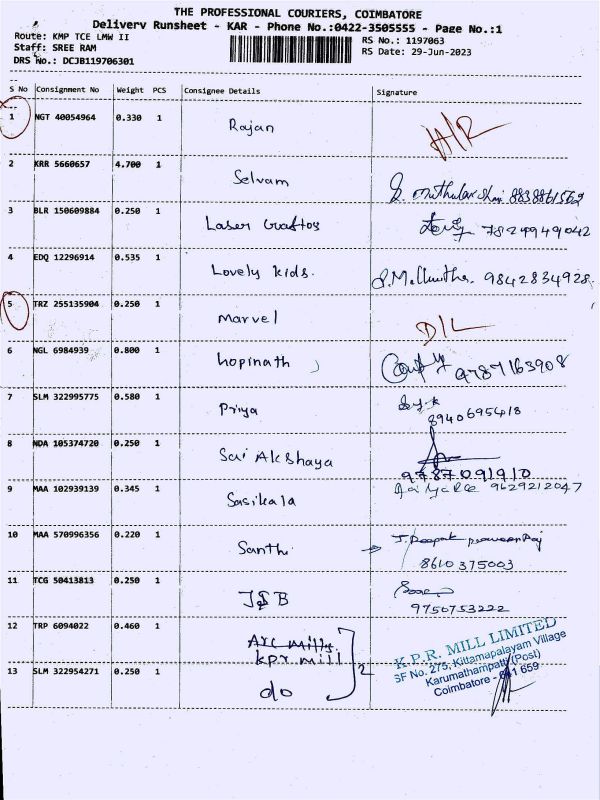 THE PROFESSIONAL COURIERS, COIMBATORE
Delivery Runsheet - KAR - Phone No.:0422-3505555 - Page No.:1
Route: KMP TCE LMW II
RS No.: 1197063
Staff: SREE RAM
RS Date: 29-Jun-2023
DRS No.: DCJB119706301
S No Consignment No Weight PCS Consignee Details Signature
1 NGT 40054964 0.330 1 Rajan
2 KRR 5660657 4.700 1 Selvam 8838861562
3 BLR 150609884 0.250 1 Laser 7824949042
4 EDQ 12296914 0.535 1 Lovely kids. 9842834928
5 TRZ 255135904 0.250 1 Marvel D/L
6 NGL 6984939 0.800 1 Gopinath 9787163908
7 SLM 322995775 0.580 1 Priya 8940695418
8 NDA 105374720 0.250 1 Sai Akshaya 9787091910
9 MAA 102939139 0.345 1 Sasikala 9629212047
10 MAA 570996356 0.220 1 Santhi J. Deepak
8610375003
11 TCG 50413813 0.250 1 JSB 9750753222
12 TRP 6094022 0.460 1 kpr mill
13 SLM 322954271 0.250 1 do 2
K.P.R. MILL LIMITED
SF No. 275, Kittamapalayam Village
Karumathampatti (Post)
Coimbatore - 641 659